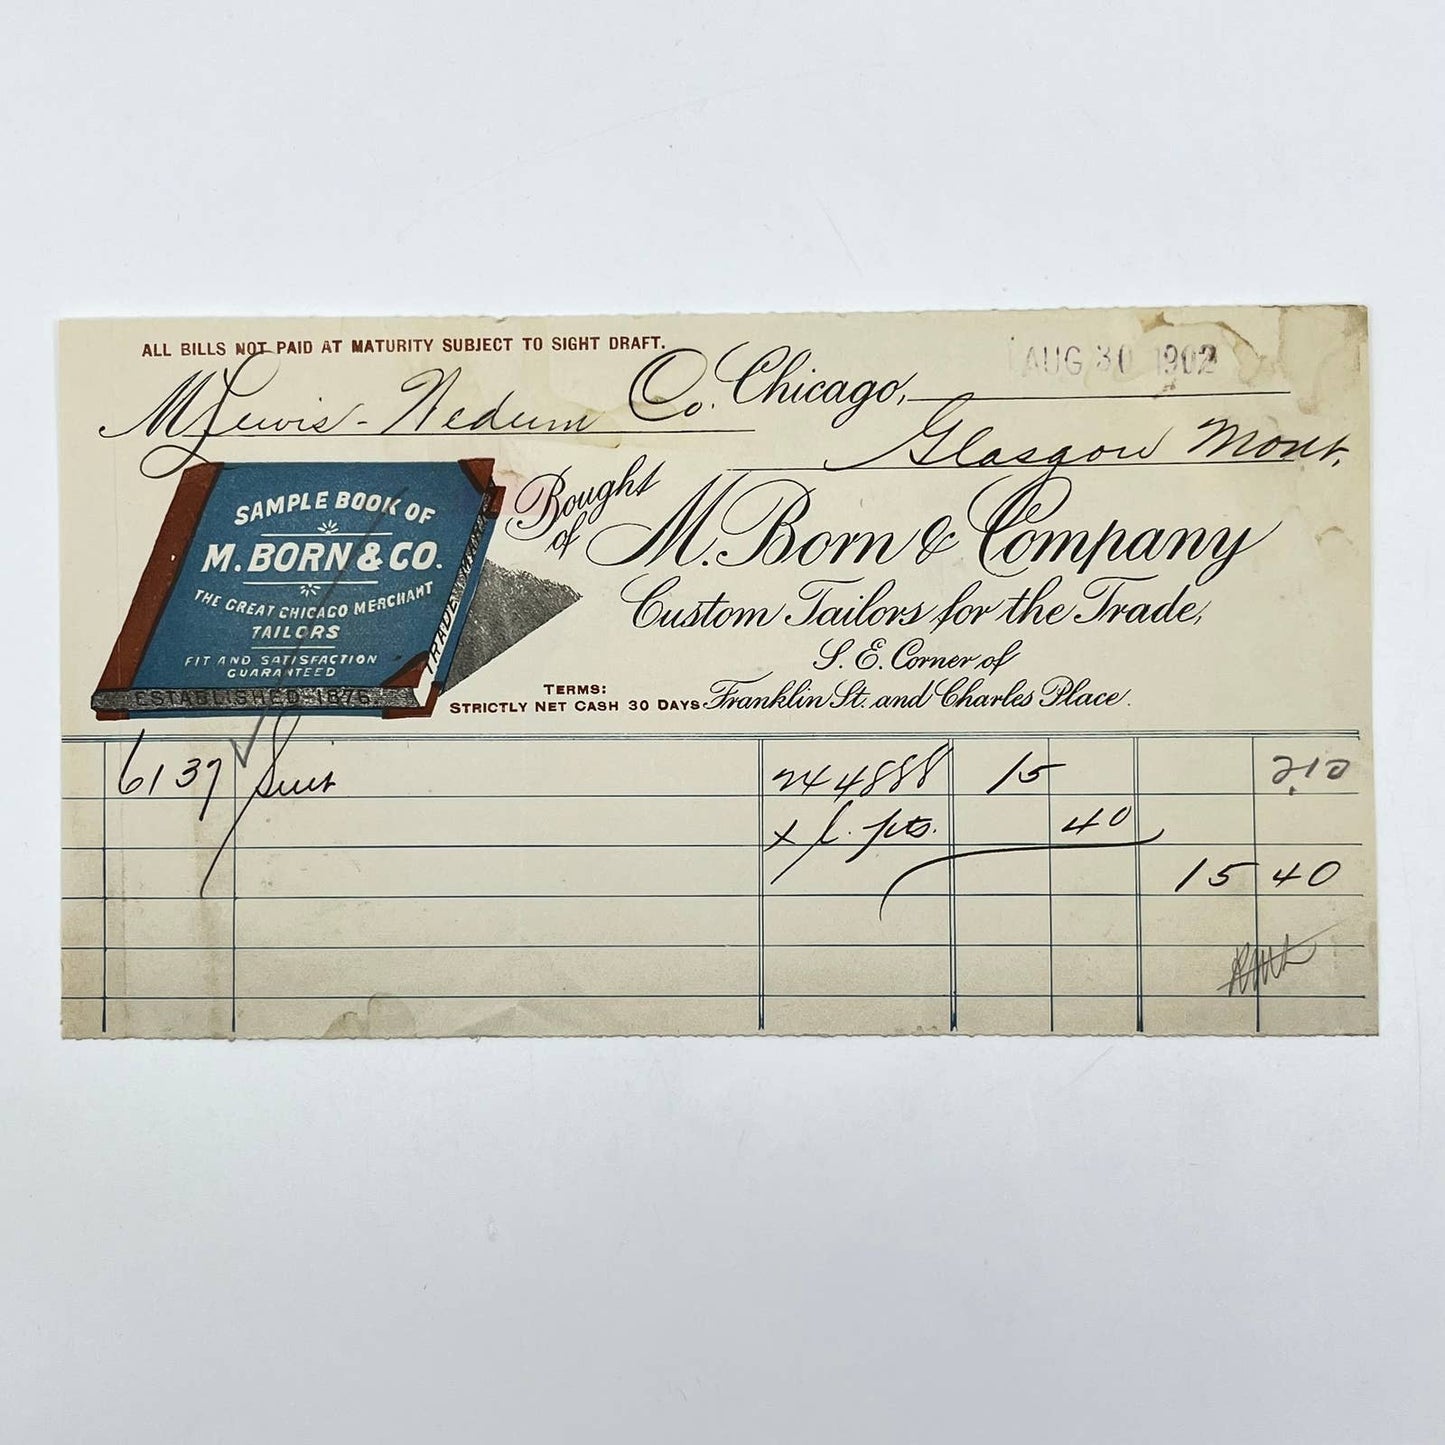 ALL BILLS NOT PAID AT MATURITY SUBJECT TO SIGHT DRAFT.
AUG 30 1902
M Lewis - Wedum Co. Chicago,
Glasgow Mont.
SAMPLE BOOK OF
M. BORN & CO.
THE GREAT CHICAGO MERCHANT
TAILORS
FIT AND SATISFACTION
GUARANTEED
ESTABLISHED 1876.
TRADE MARK
Bought of M. Born & Company
Custom Tailors for the Trade,
S. E. Corner of
Franklin St. and Charles Place.
TERMS:
STRICTLY NET CASH 30 DAYS
6137 Suit 244888 15 210
x l. pts. 40
15 40